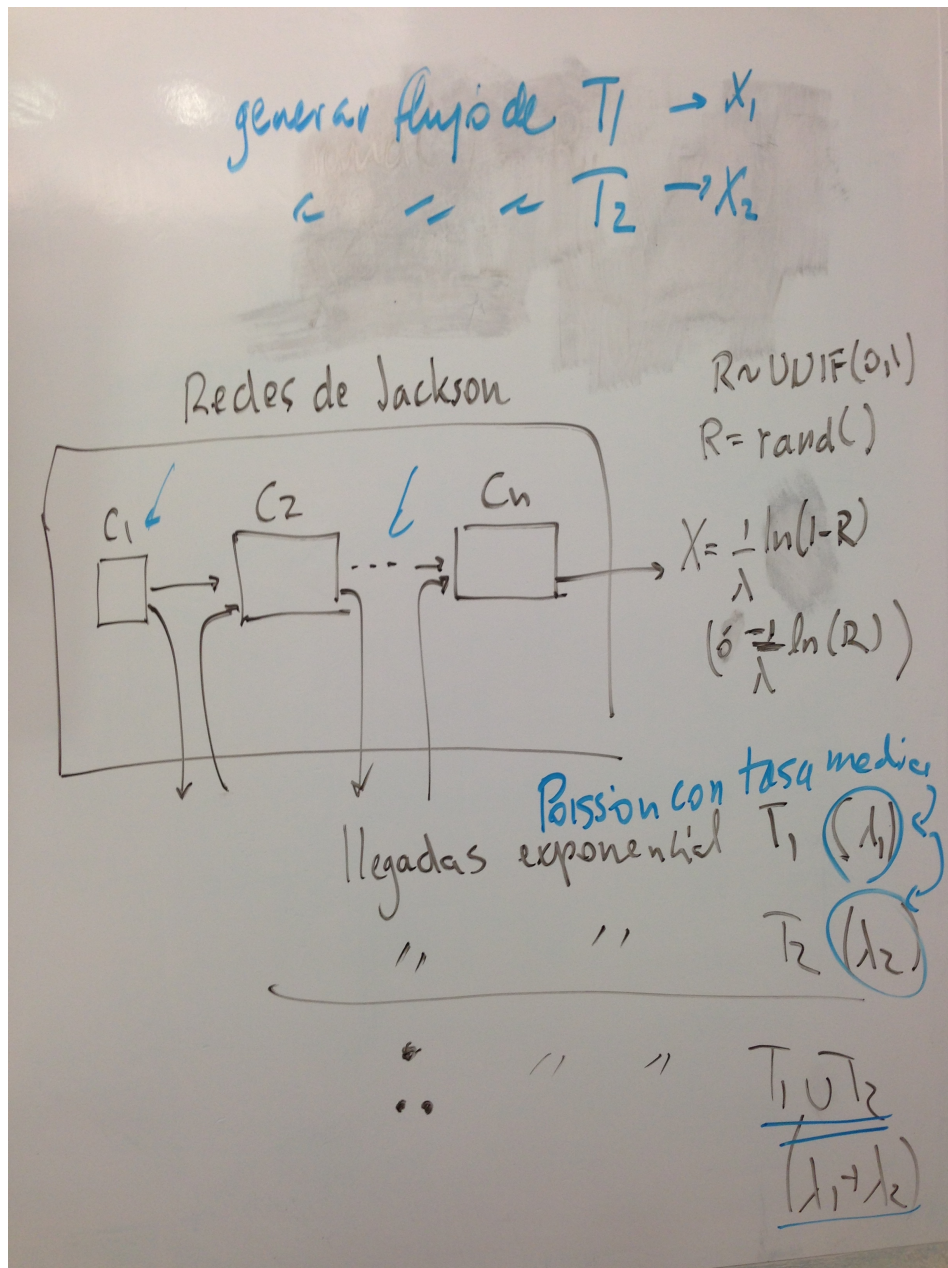 generar flujo de T1 → X1
" " " T2 → X2
Redes de Jackson
R~UNIF(0,1)
R= rand()
C1 C2 Cn
X= 1/λ ln(1-R)
(ó -1/λ ln(R))
Poission con tasa media
llegadas exponencial T1 (λ1)
" " T2 (λ2)
∴ " " T1 ∪ T2
(λ1+λ2)